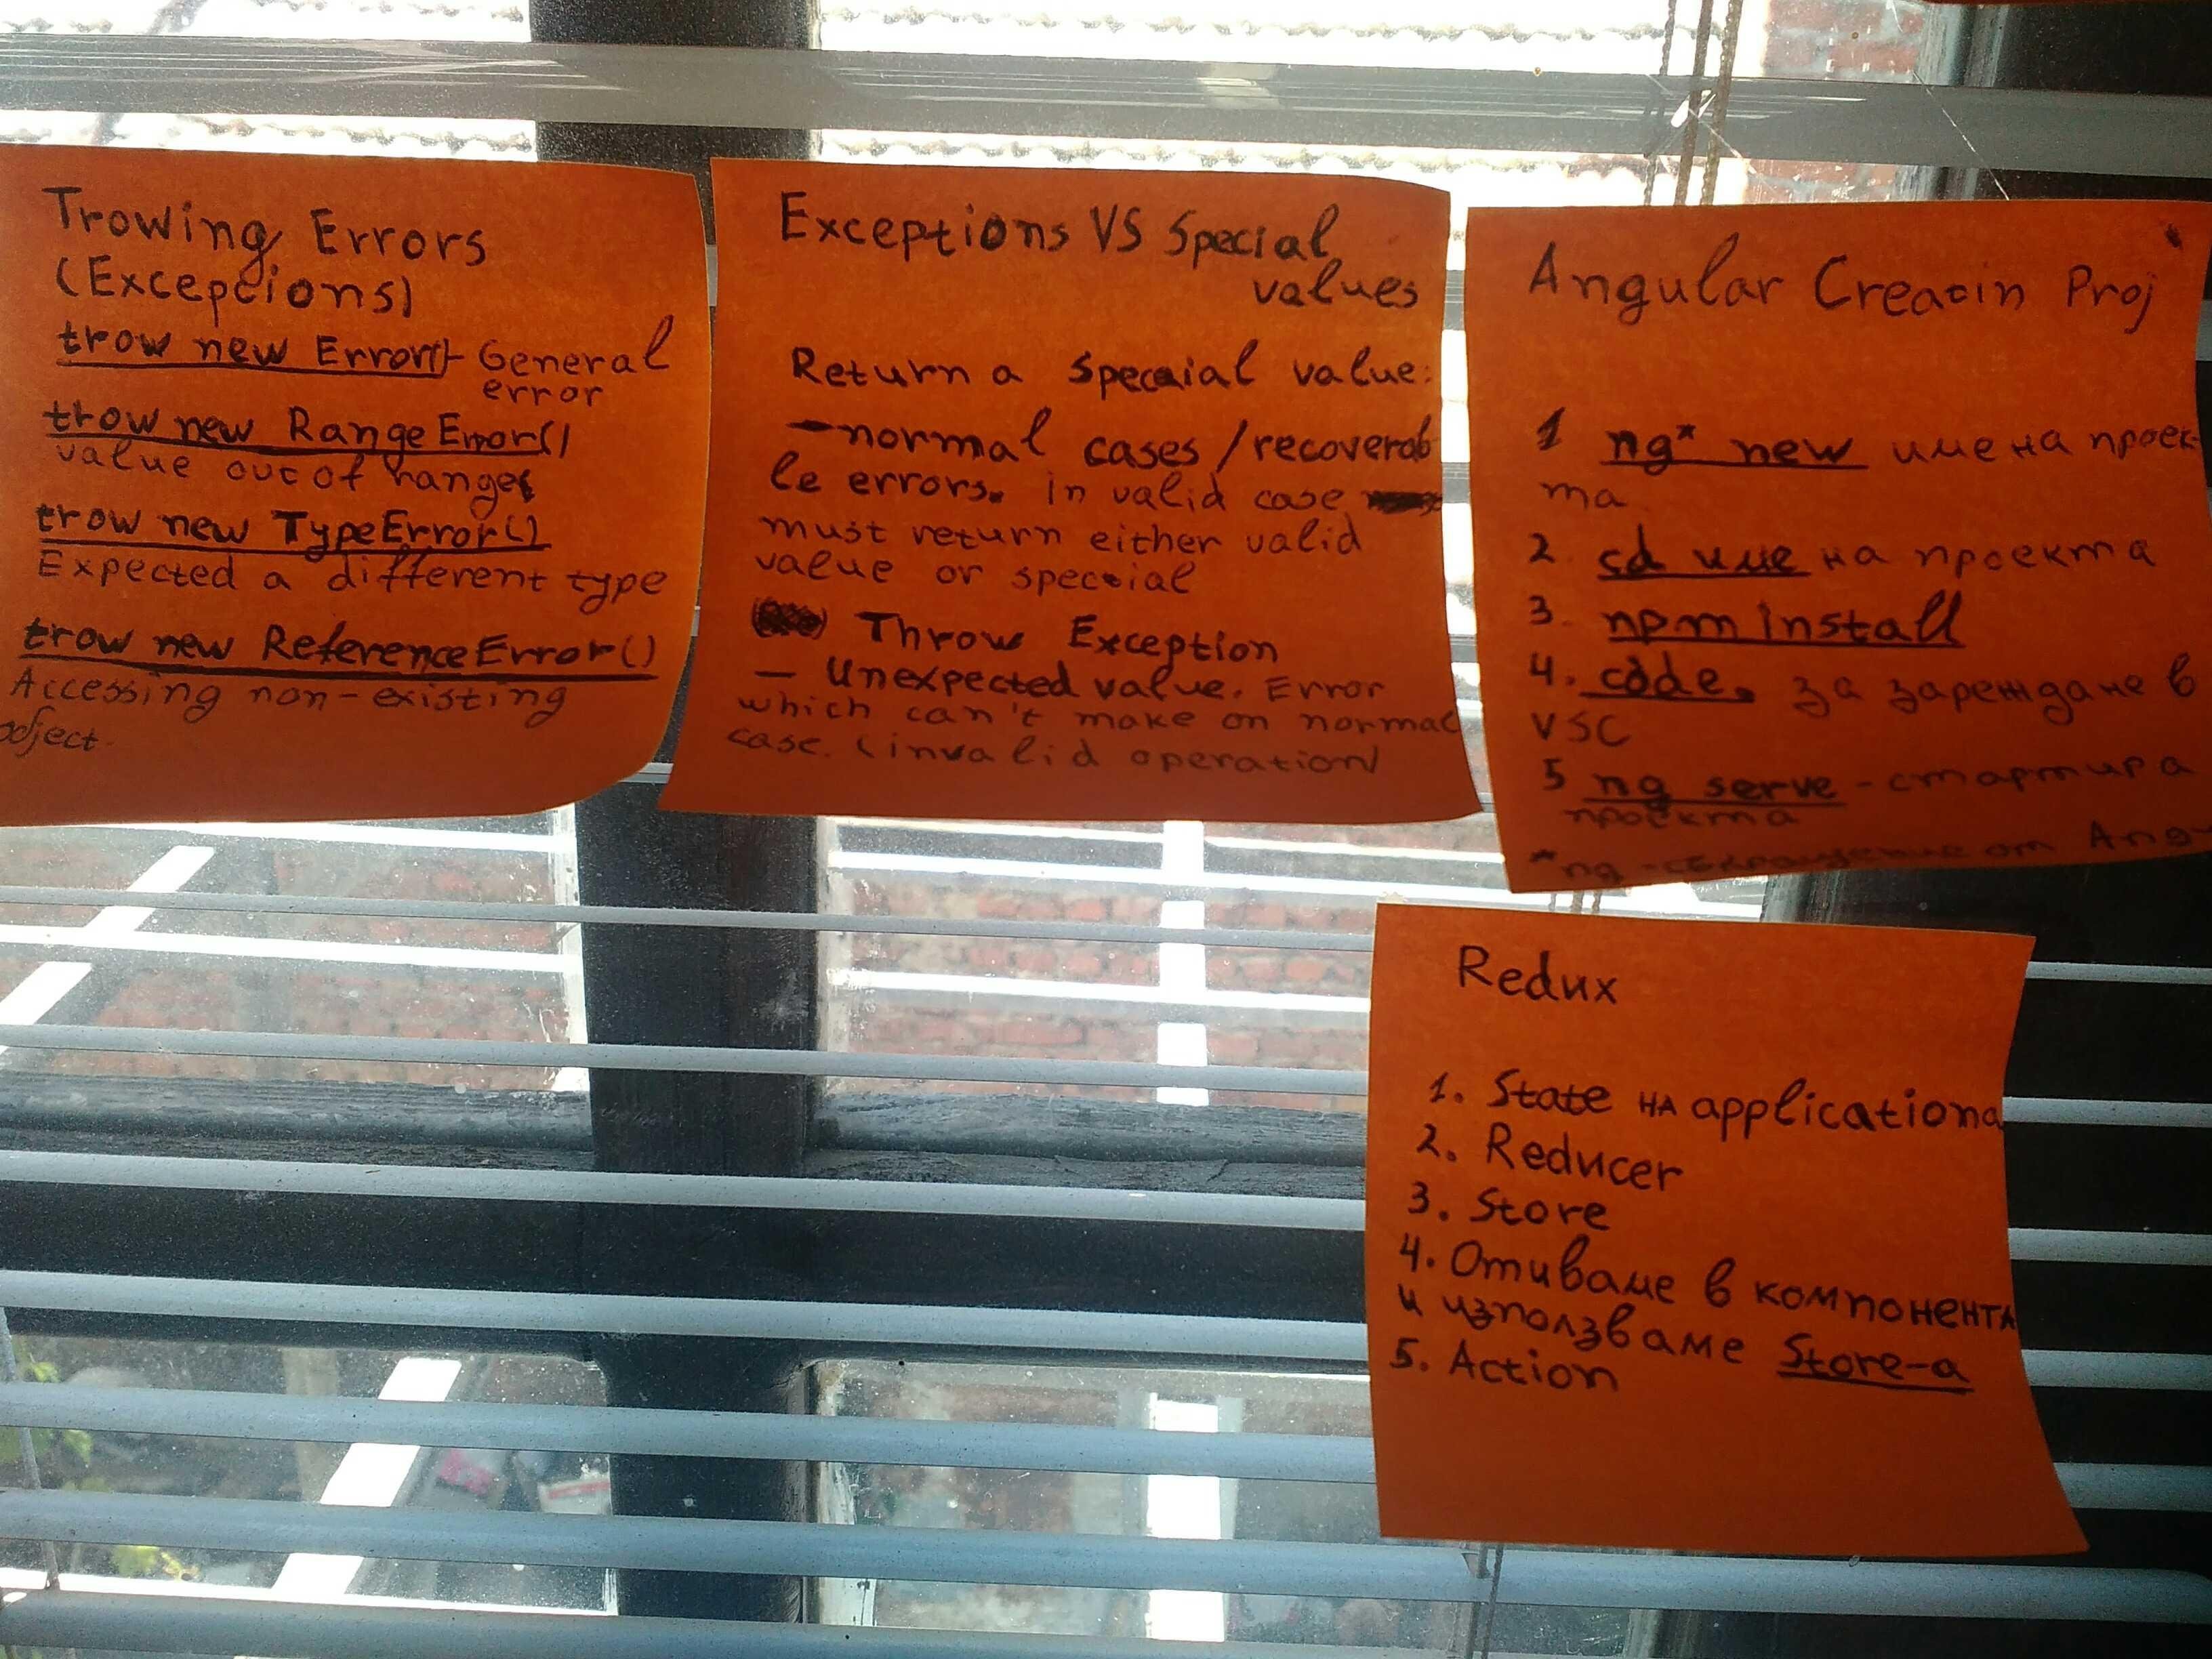 Trowing Errors
(Exceptions)
trow new Error() - General
error
trow new RangeError()
value out of ranges
trow new TypeError()
Expected a different type
trow new ReferenceError()
Accessing non-existing
object.
Exceptions VS Special
values
Return a special value:
- normal cases / recoverab
le errors. In valid case
must return either valid
value or special
Throw Exception
- Unexpected value. Error
which can't make on normal
case. (invalid operation)
Angular Creatin Proj
1 ng* new име на проек-
та
2. cd име на проекта
3. npm install
4. code . за зареждане в
VSC
5 ng serve - стартира
проекта
*ng - съкращение от Ang-
Redux
1. State на applicationa
2. Reducer
3. Store
4. Отиваме в компонента
и използваме Store-a
5. Action